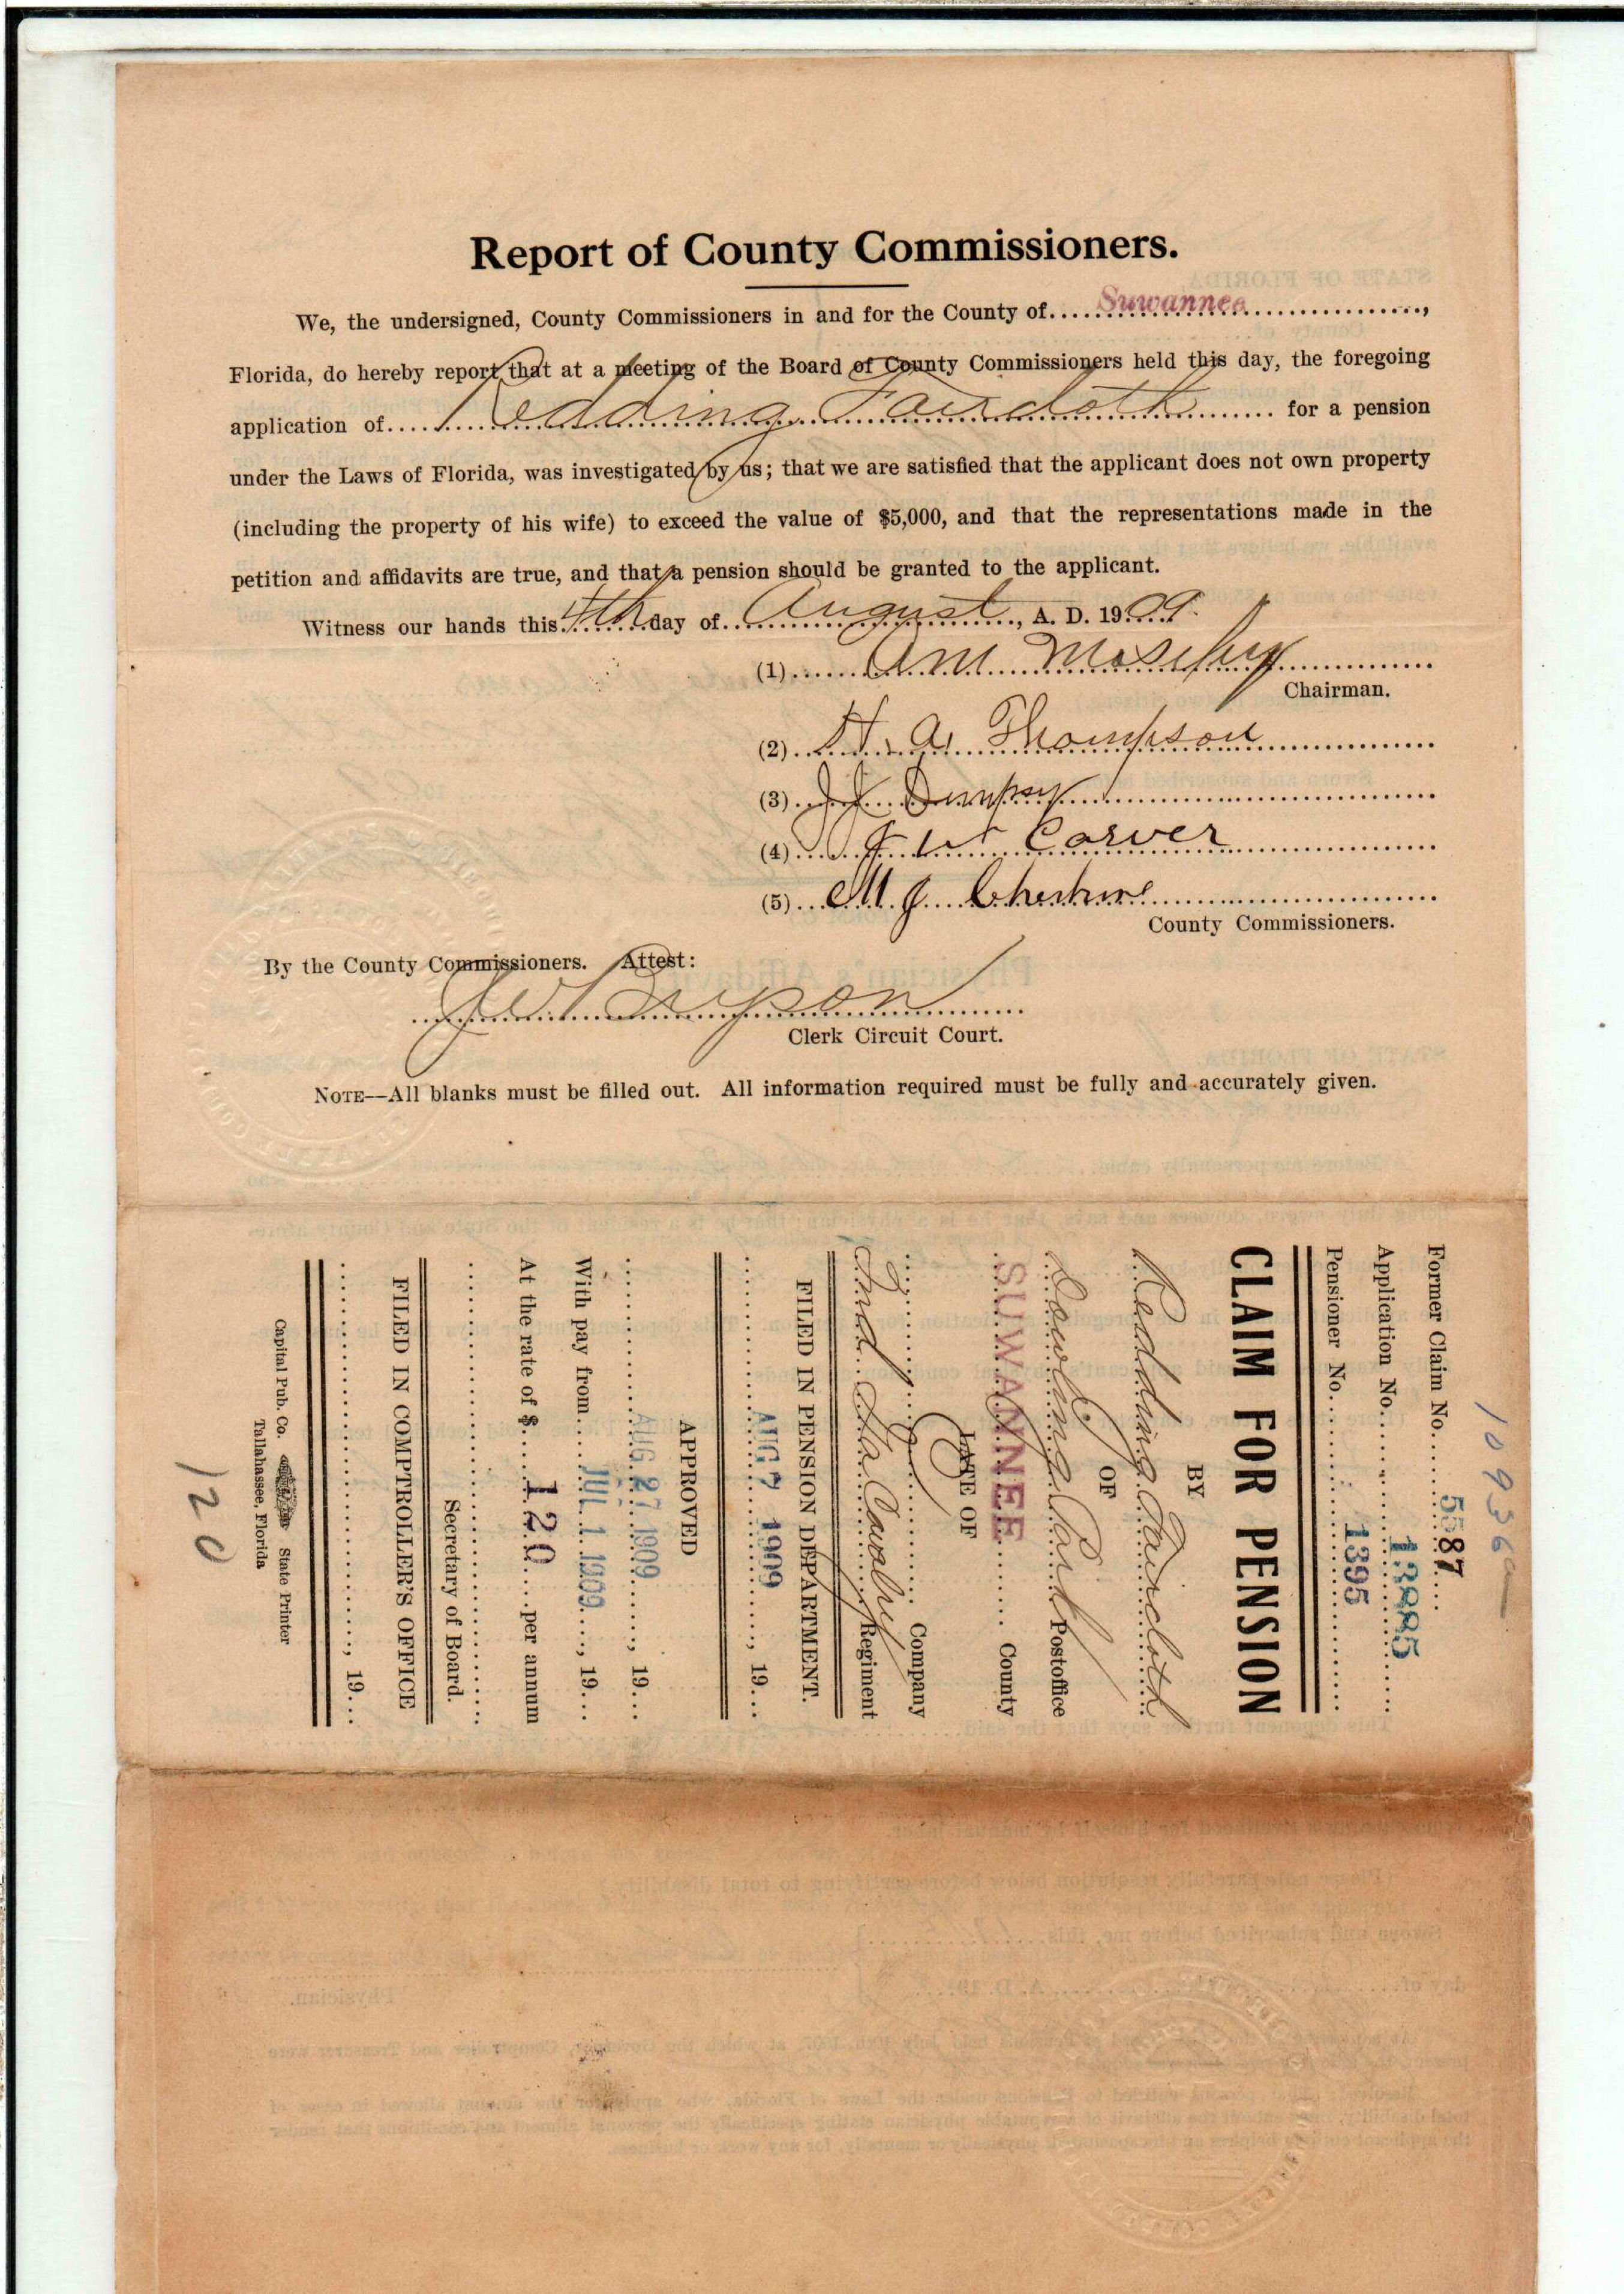 Report of County Commissioners.
We, the undersigned, County Commissioners in and for the County of.... Suwannee ....,
Florida, do hereby report that at a meeting of the Board of County Commissioners held this day, the foregoing
application of.... Redding Faircloth .... for a pension
under the Laws of Florida, was investigated by us; that we are satisfied that the applicant does not own property
(including the property of his wife) to exceed the value of $5,000, and that the representations made in the
petition and affidavits are true, and that a pension should be granted to the applicant.
Witness our hands this 4th day of August, A. D. 1909.
(1) A M Moseley
Chairman.
(2) H. A. Thompson
(3) J J Dempsey
(4) J W Carver
(5) M J Cheshire
County Commissioners.
By the County Commissioners. Attest:
J W Bryson
Clerk Circuit Court.
NOTE—All blanks must be filled out. All information required must be fully and accurately given.
10936
Former Claim No. 5587
Application No.
Pensioner No. 1395
CLAIM FOR PENSION
BY
Redding Faircloth
OF
Dowling Park Postoffice
SUWANNEE County
LATE OF
Company
2nd Fla Cavalry Regiment
FILED IN PENSION DEPARTMENT.
AUG 7 1909, 19...
APPROVED
AUG 27 1909, 19...
With pay from JUL 1 1909, 19...
At the rate of $ 120 per annum
Secretary of Board.
FILED IN COMPTROLLER'S OFFICE
, 19...
Capital Pub. Co. State Printer
Tallahassee, Florida
120